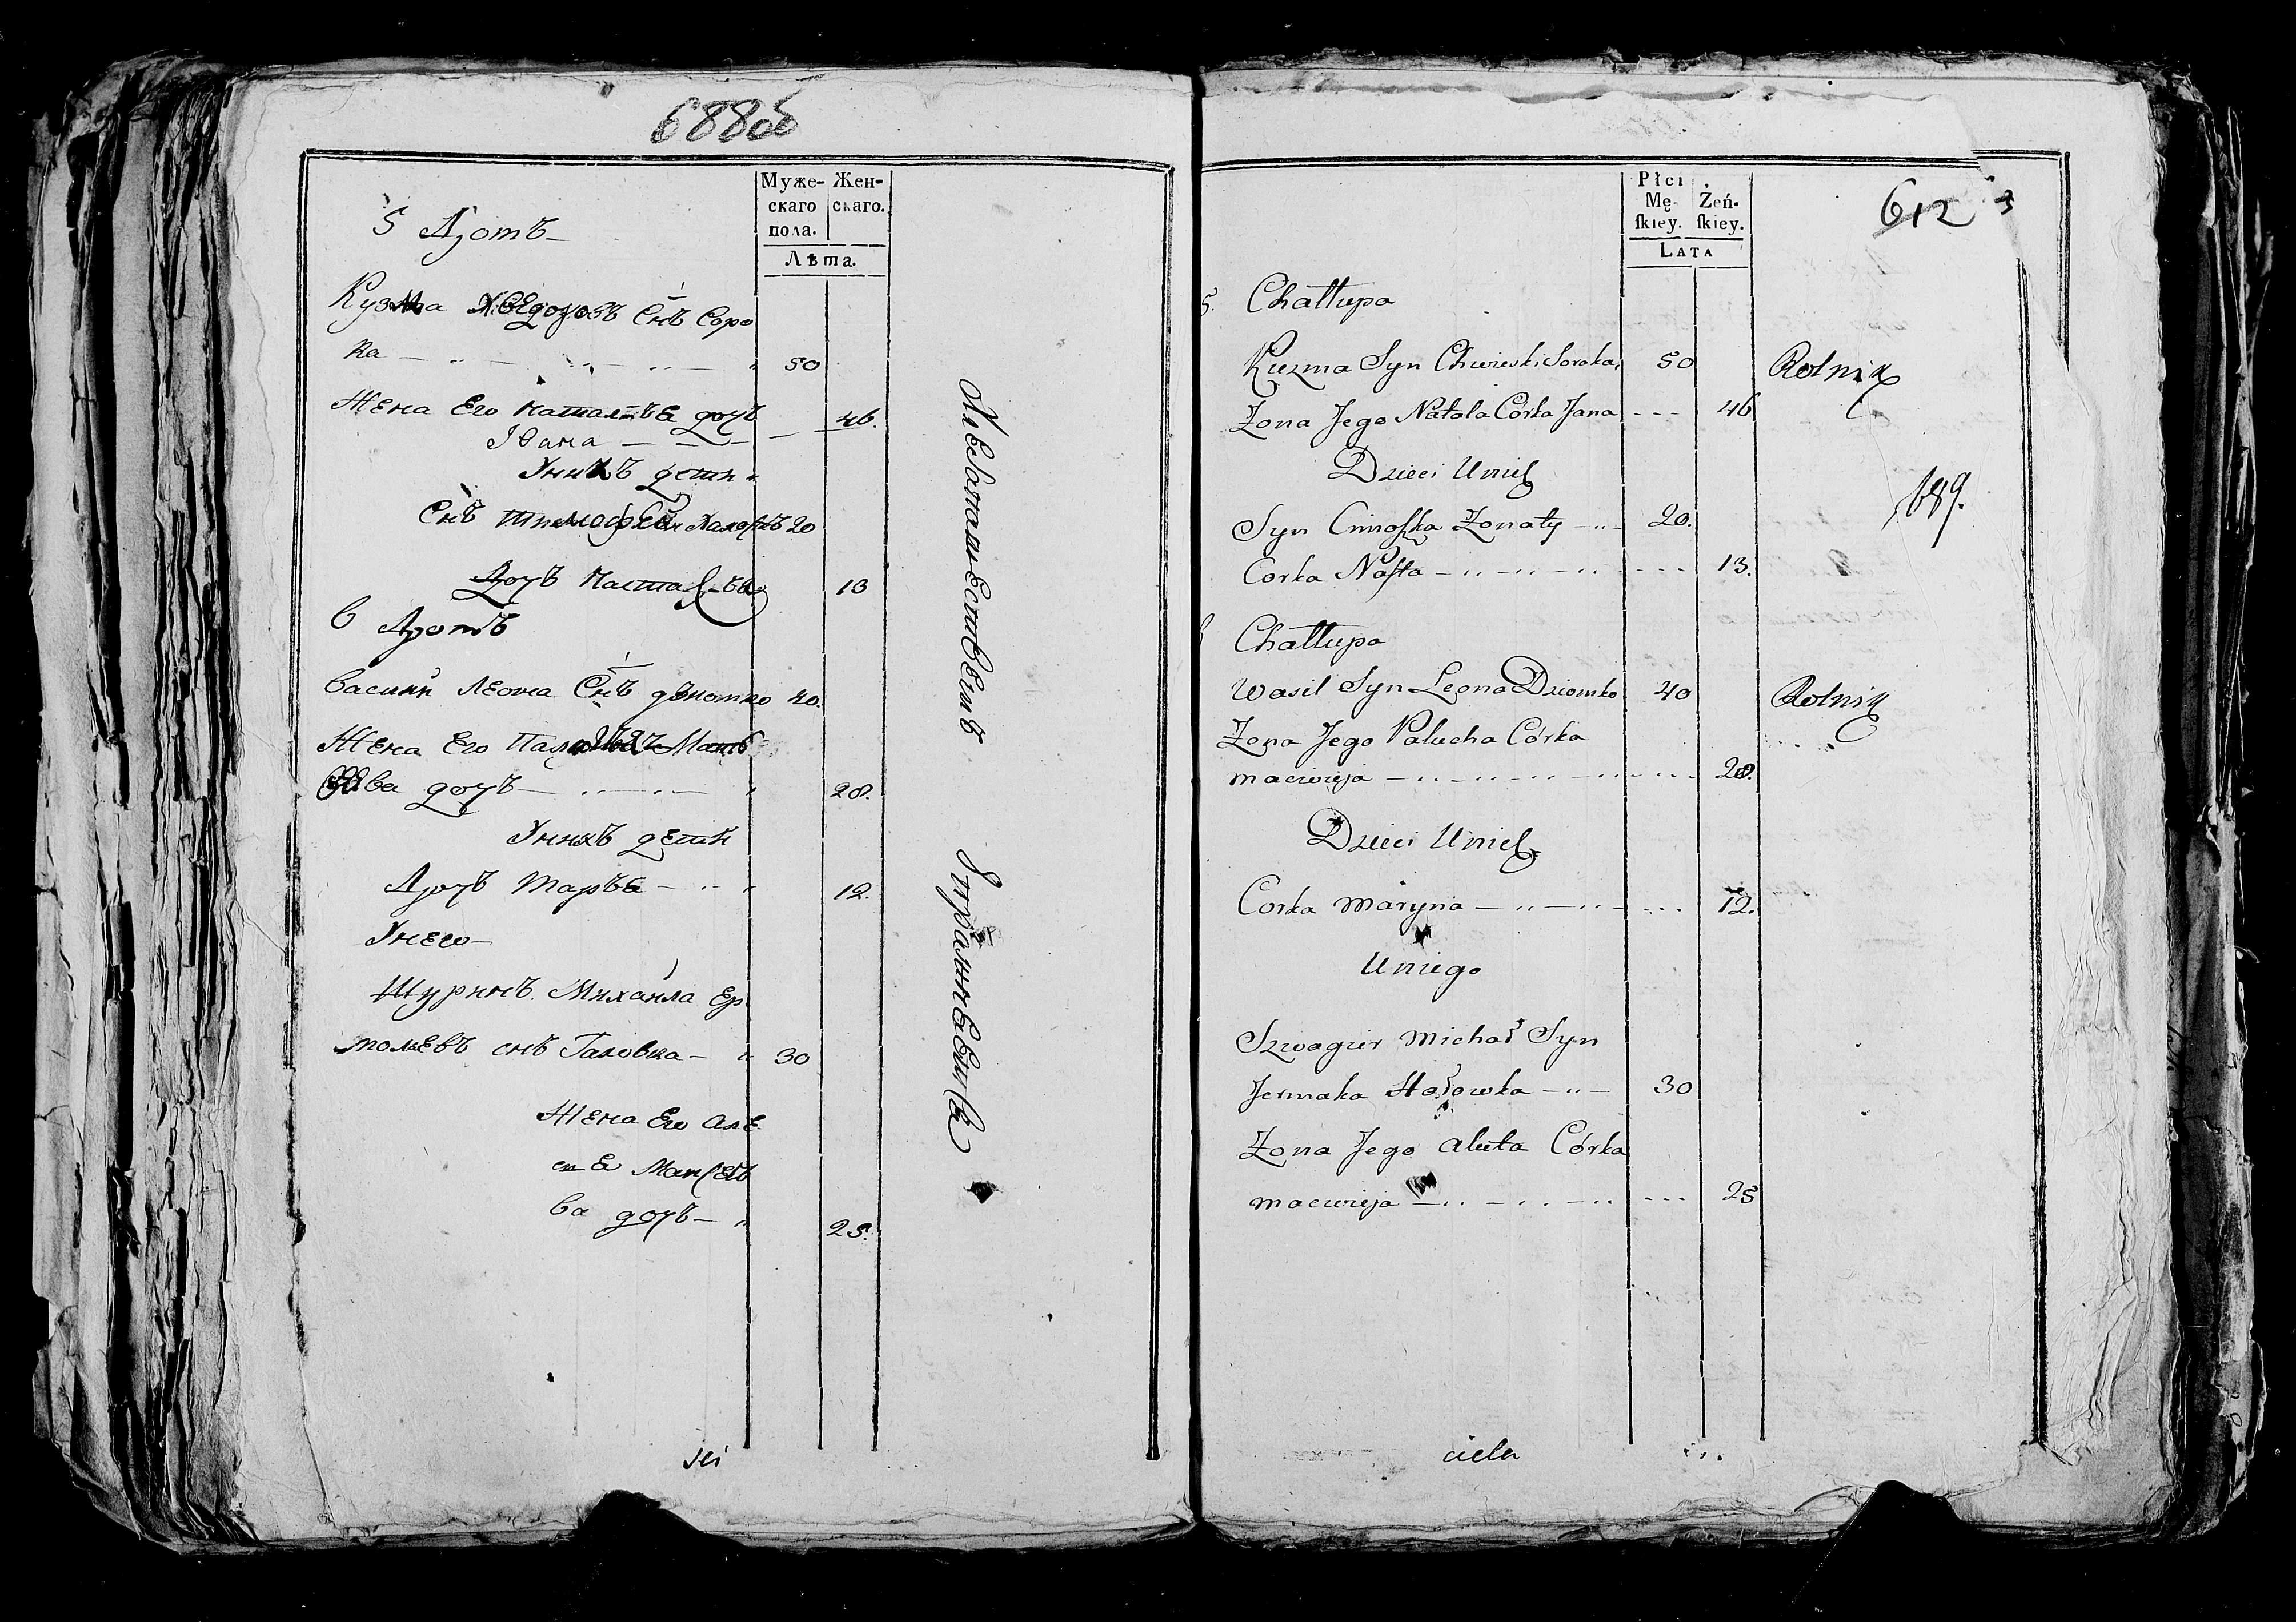 688об
Муже- Жен-
скаго скаго.
пола.
Лѣта.
5 Дотъ
Кузма Хведоровъ Снъ Соро
ка 50
Жена Его Наталья дочъ 46.
Ивана
Унихъ дети
Снъ Тимофей 20
Дочъ Настасья 13
6 Дотъ
Василй Леона Снъ дзиомко 40.
Жена Его Палагея Матъ
ѣева дочъ 28.
Унихъ дети
Дочъ Маръя 12.
Унего
Шуринъ Михайла Ер
молаевъ снъ Галовка 30
Жена Его Але
на Матѣе
ва дочъ 25.
sei
612
689.
Płci
Mę- Żeń-
ſkiey. ſkiey.
LATA
5. Chałłupa
Kuzma Syn Chwieski Soroka 50 Rolnik
Zona Jego Natala Córka Jana 46
Dzieci Unich
Syn Cimoſzka Zonaty 20.
Corka Naſta 13.
6 Chałłupa
Wasil Syn Leona Dziomko 40 Rolnik
Zona Jego Palucha Córka
macwieja 28.
Dzieci Unich
Corka Maryna 12.
Uniego
Szwagier Michał Syn
Jermaka Hołowka 30
Zona Jego Aluta Córka
macwieja 25
ciela